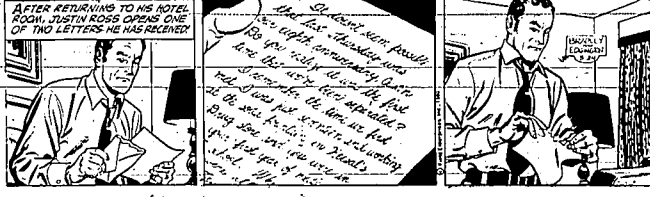 AFTER RETURNING TO HIS HOTEL
ROOM, JUSTIN ROSS OPENS ONE
OF TWO LETTERS HE HAS RECEIVED!
It doesn't seem possible
that last Thursday was
our eighth anniversary, Justin
Do you realize it was the first
time that we've been separated?
I remember the time we first
met I was just seventeen and working
at the soda fountain in
Drug Store and you were in
your first year of
BRADLEY
EDGINGTON